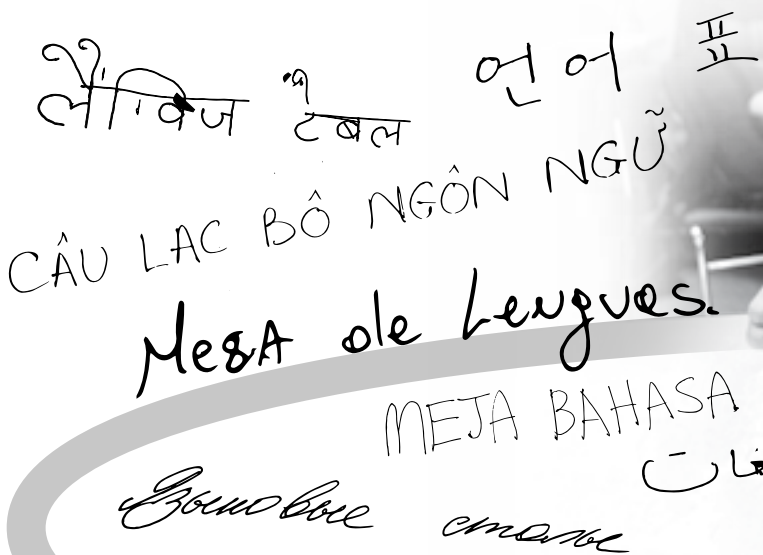 लैंग्विज टेबल
언어 표
CÂU LAC BÔ NGÔN NGỮ
Mesa de Lenguas.
MEJA BAHASA
Языковые столы